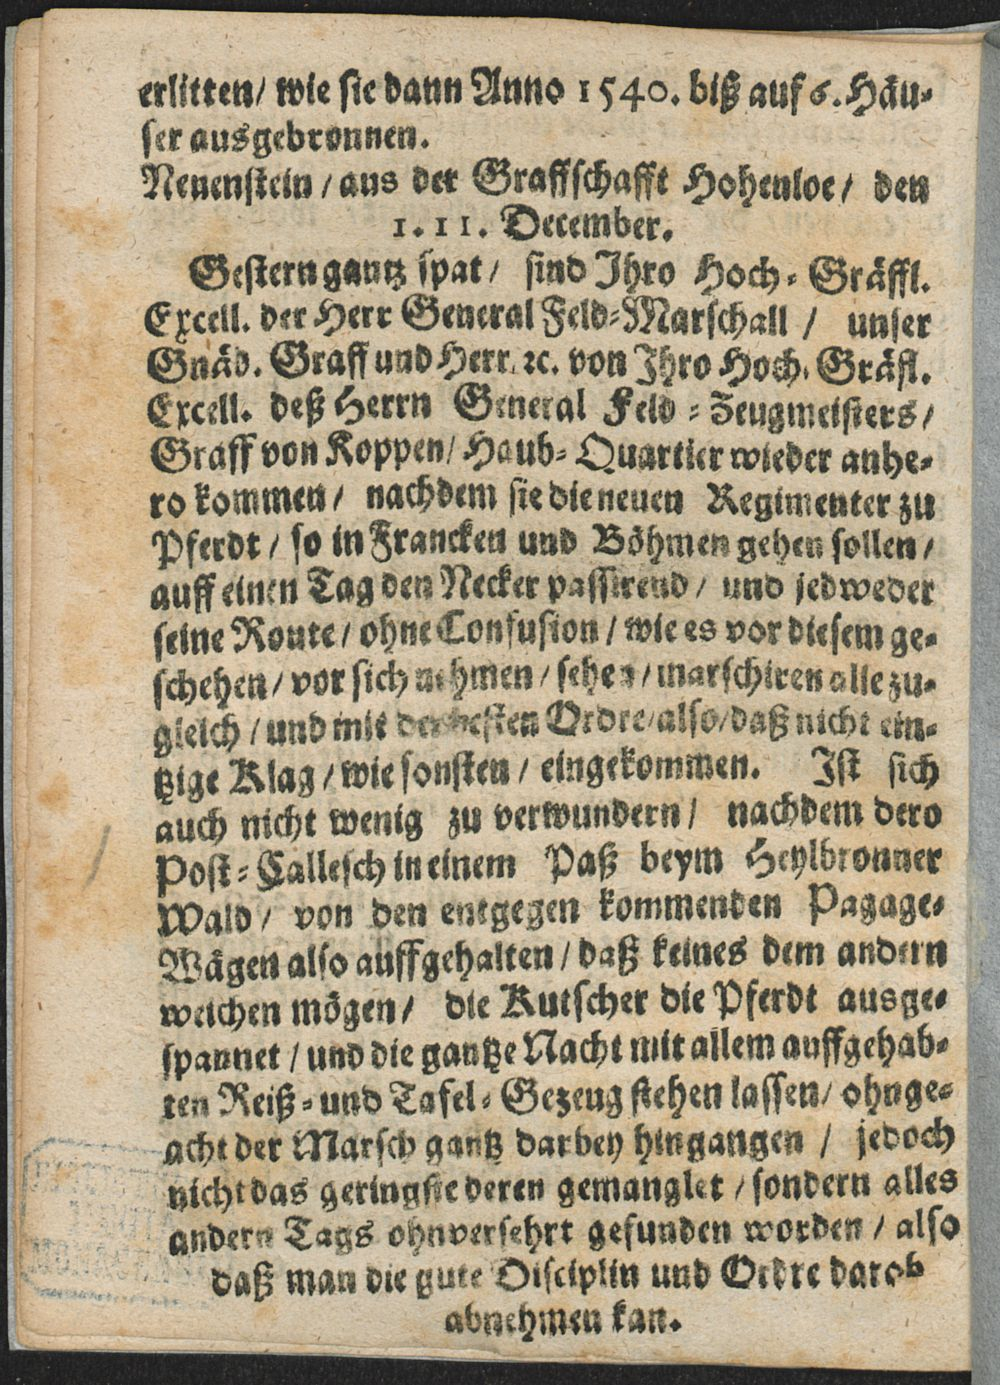 erlitten/ wie sie dann Anno 1540. biß auf 6. Häu-
ser ausgebronnen.
Neuenstein / aus der Graffschafft Hohenloe / den
1. 11. December.
Gestern gantz spat / sind Ihro Hoch-Gräffl.
Excell. der Herr General Feld-Marschall / unser
Gnäd. Graff und Herr, ꝛc. von Ihro Hoch-Gräfl.
Excell. deß Herrn General Feld-Zeugmeisters /
Graff von Koppen/ Haub-Quartier wieder anhe-
ro kommen / nachdem sie die neuen Regimenter zu
Pferdt / so in Francken und Böhmen gehen sollen /
auff einen Tag den Necker passirend / und jedweder
seine Route / ohne Confusion / wie es vor diesem ge-
schehen / vor sich nehmen / sehen / marschiren alle zu-
gleich / und mit der besten Ordre/ also/ daß nicht ein-
tzige Klag / wie sonsten / eingekommen. Ist sich
auch nicht wenig zu verwundern / nachdem dero
Post-Callesch in einem Paß beym Heylbronner
Wald / von den entgegen kommenden Pagage-
Wägen also auffgehalten / daß keines dem andern
weichen mögen / die Kutscher die Pferdt ausge-
spannet / und die gantze Nacht mit allem auffgehab-
ten Reiß- und Tafel-Gezeug stehen lassen/ ohnge-
acht der Marsch gantz darbey hingangen / jedoch
nicht das geringste deren gemanglet / sondern alles
andern Tags ohnversehrt gefunden worden / also
daß man die gute Disciplin und Ordre darob
abnehmen kan.